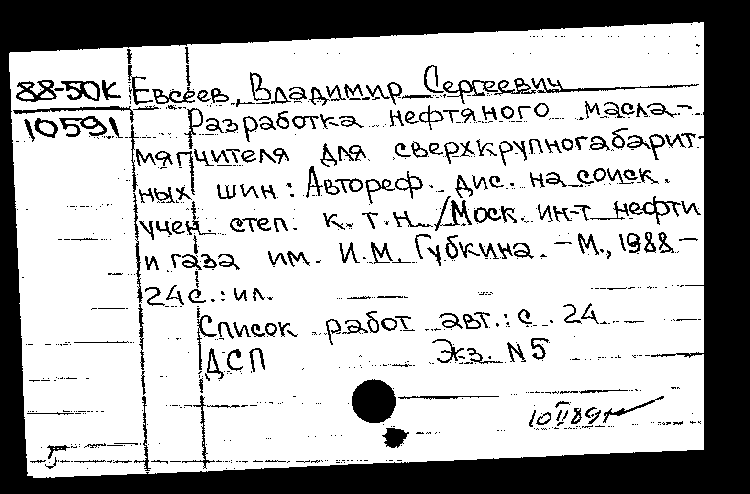 88-50К Евсеев, Владимир Сергеевич
10591 Разработка нефтяного масла-
мягчителя для сверхкрупногабарит-
ных шин: Автореф. дис. на соиск.
учен степ. к.т.н. /Моск. ин-т нефти
и газа им. И.М. Губкина. – М., 1988 –
24 с.: ил.
Список работ авт.: с. 24
ДСП Экз. N5
10 II 89г